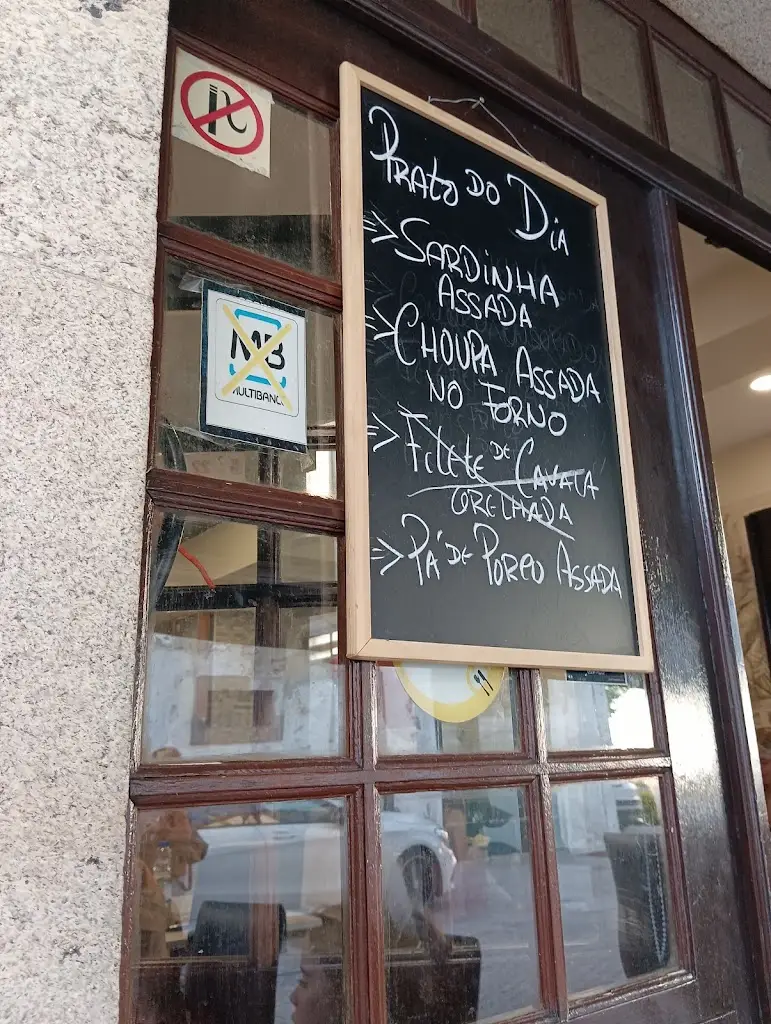 Prato do Dia
=> Sardinha
Assada
=> Choupa Assada
no Forno
=> Filete de Cavala
Grelhada
=> Pá de Porco Assada
MB
MULTIBANCO